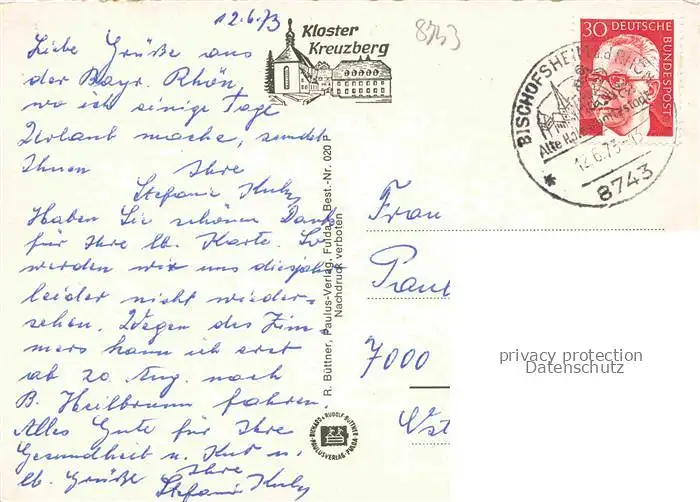 12.6.73
Liebe Grüße aus
der Bayr. Rhön,
wo ich einige Tage
Urlaub mache, sendet
Ihnen Ihre
Stefanie Kuhn
Haben Sie schönen Dank
für Ihre lb. Karte. So
werden wir uns diesjahr
leider nicht wieder-
sehen. Wegen des Zim-
mers kann ich erst
ab 20. Aug. nach
B. Heilbrunn fahren.
Alles Gute für Ihre
Gesundheit u. Kur u.
lb. Grüße Ihre
Stefanie Kuhn
Kloster
Kreuzberg
R. Büttner, Paulus-Verlag, Fulda Best.-Nr. 020 F
Nachdruck verboten
RICHARD & RUDOLF BÜTTNER
PAULUSVERLAG · FULDA
8743
30 DEUTSCHE
BUNDESPOST
BISCHOFSHEIM a.d. RHÖN
Alte
12.6.73
8743
Frau
7000
privacy protection
Datenschutz